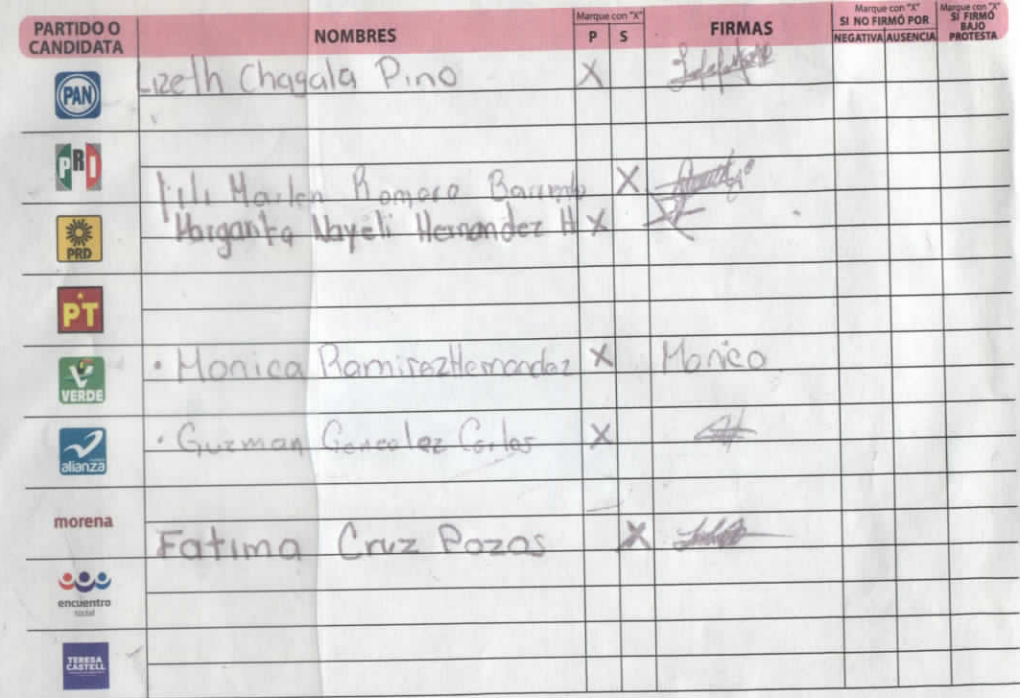 PARTIDO O CANDIDATA NOMBRES Marque con "X" P S FIRMAS Marque con "X" SI NO FIRMÓ POR NEGATIVA AUSENCIA Marque con "X" SI FIRMÓ BAJO PROTESTA
PAN Lizeth Chagala Pino X
PRI
Lili Marlen Romero X
PRD Margarita Nayeli Hernandez H X
PT
VERDE • Monica Ramirez Hernandez X Monica
alianza • Guzman Gonzalez Carlos X
morena
Fatima Cruz Pozos X
encuentro social
TERESA CASTELL